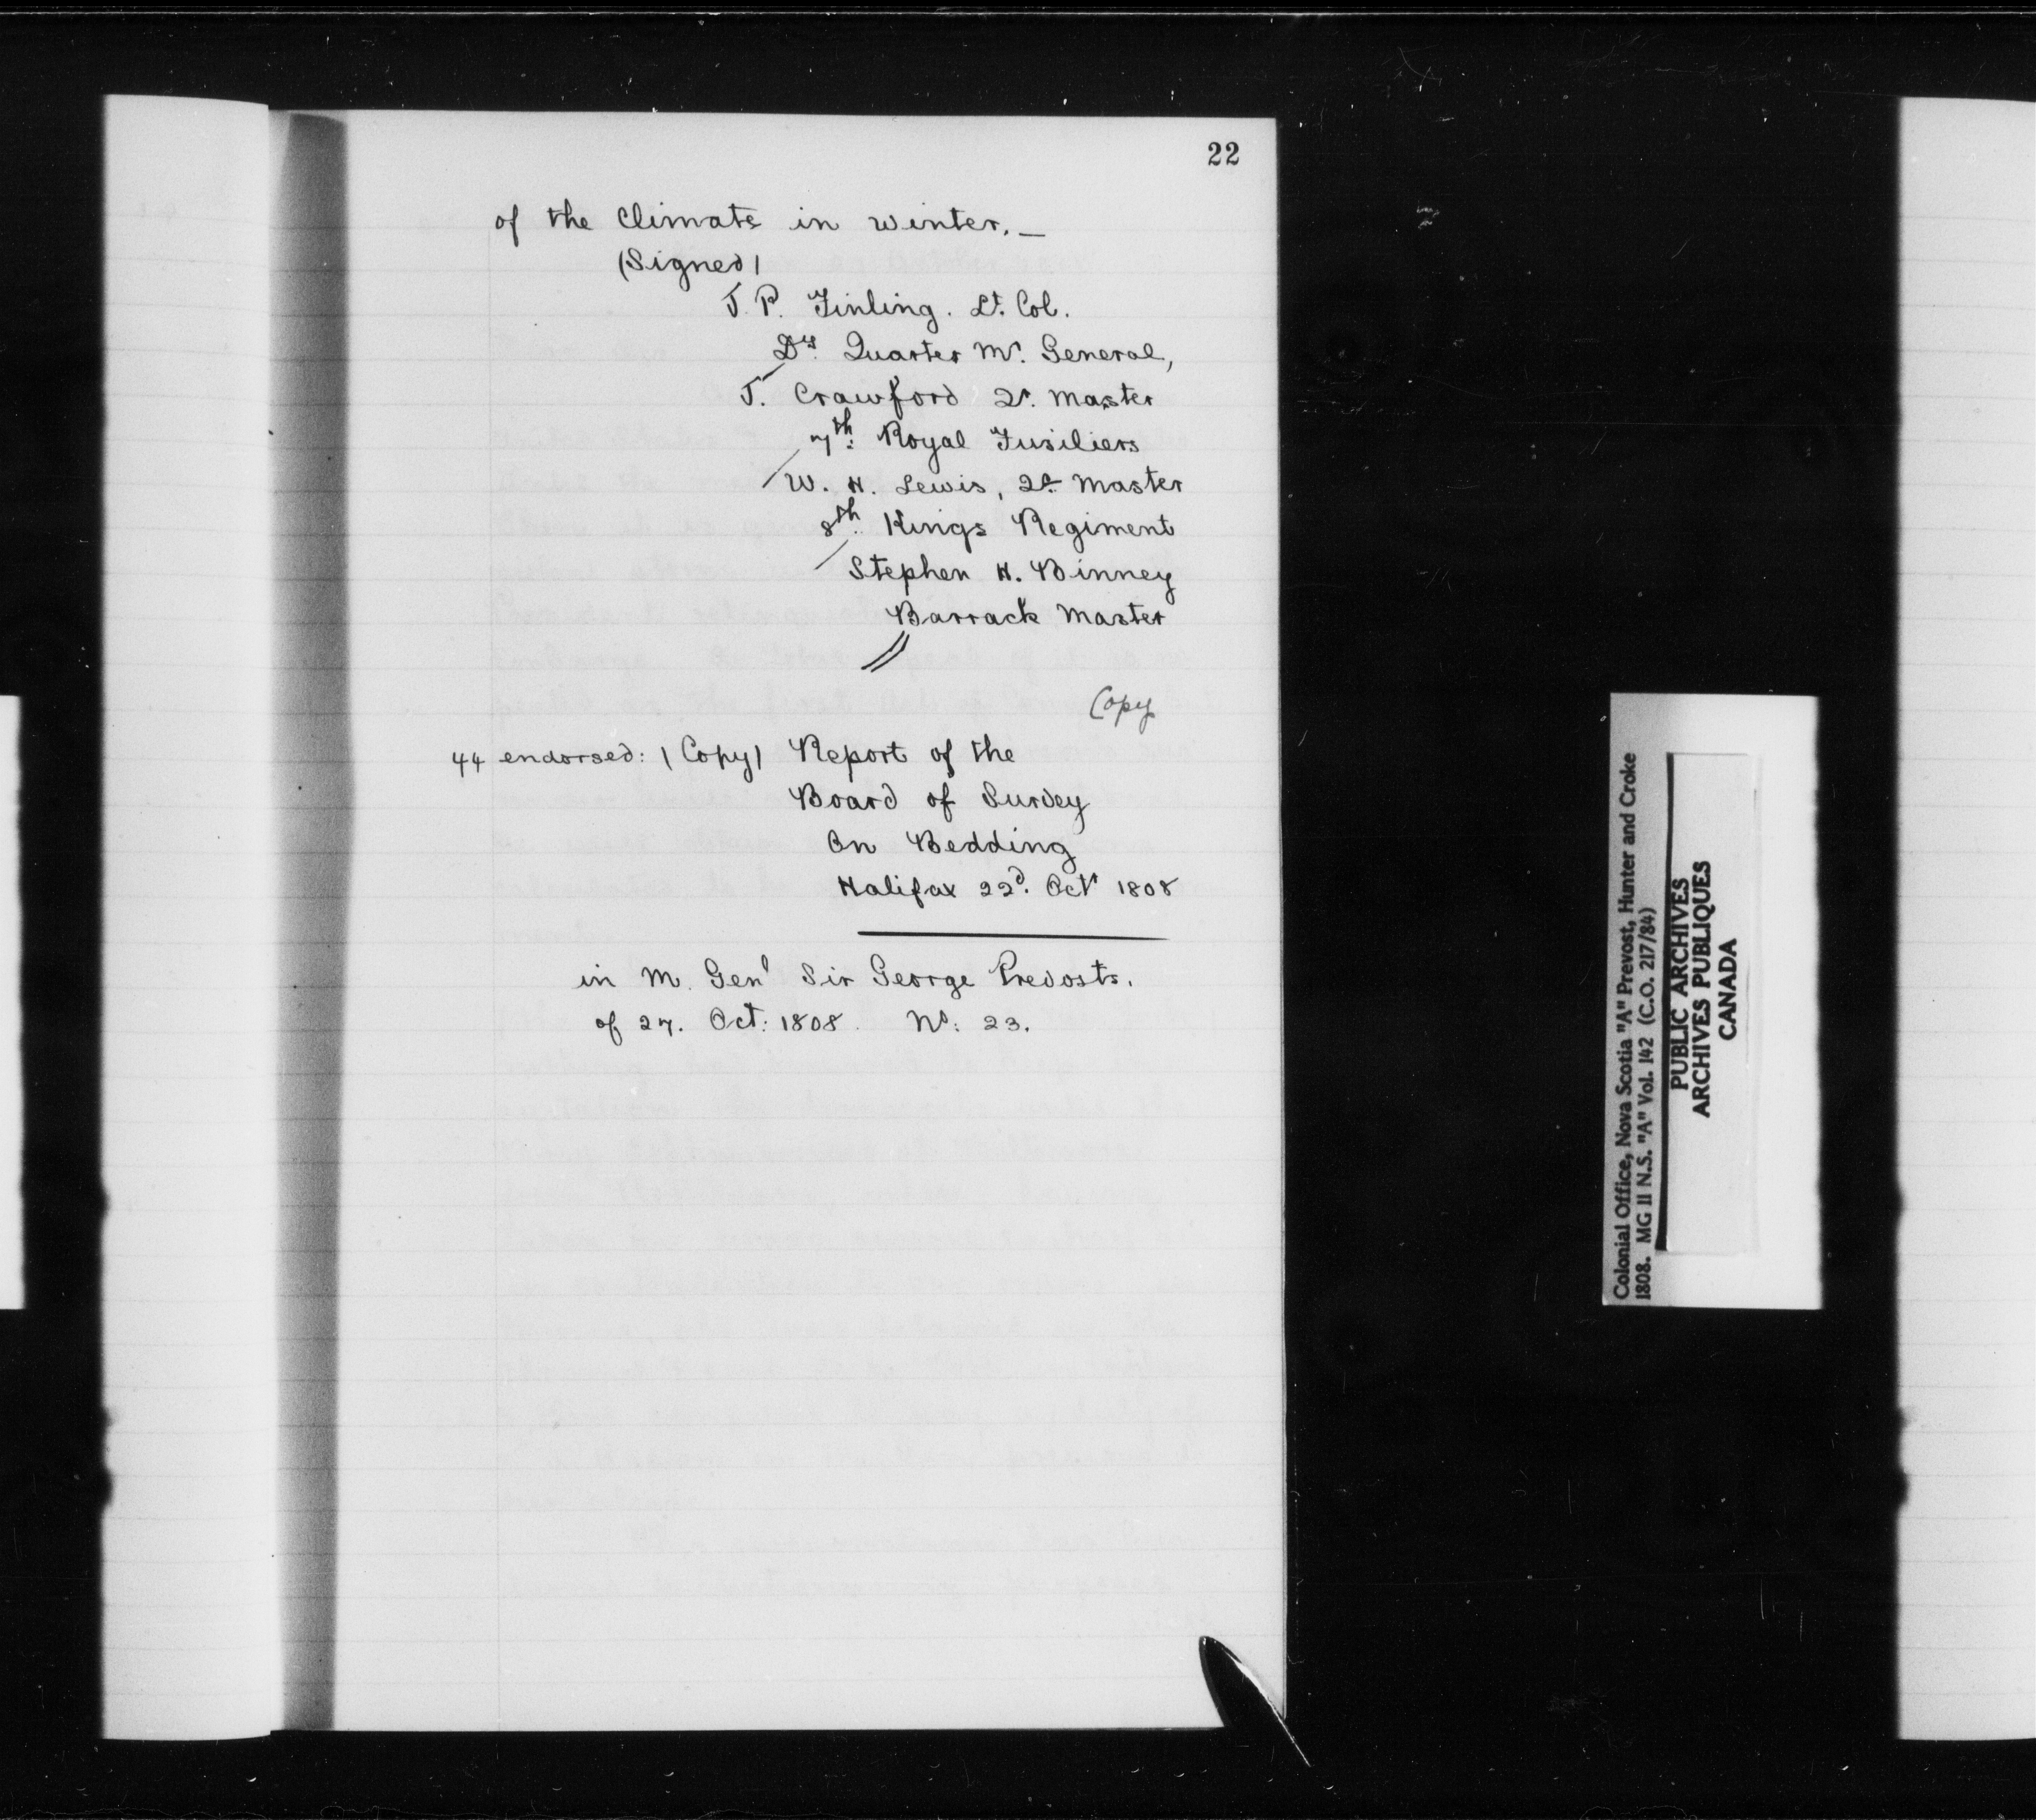 22
of the Climate in winter. —
(Signed)
J. P. Tinling. Lt. Col.
Dy. Quarter Mr. General,
J. Crawford Qr. Master
7th: Royal Fusiliers
W. H. Lewis, Qr. Master
8th. Kings Regiment
Stephen H. Binney
Barrack Master
Copy
44 endorsed: (Copy) Report of the
Board of Survey
On Bedding
Halifax 22d. Octr 1808
in M. Genl Sir George Prevosts.
of 27. Oct: 1808. No: 23.
Colonial Office, Nova Scotia "A" Prevost, Hunter and Croke
1808. MG 11 N.S. "A" Vol. 142 (C.O. 217/84)
PUBLIC ARCHIVES
ARCHIVES PUBLIQUES
CANADA